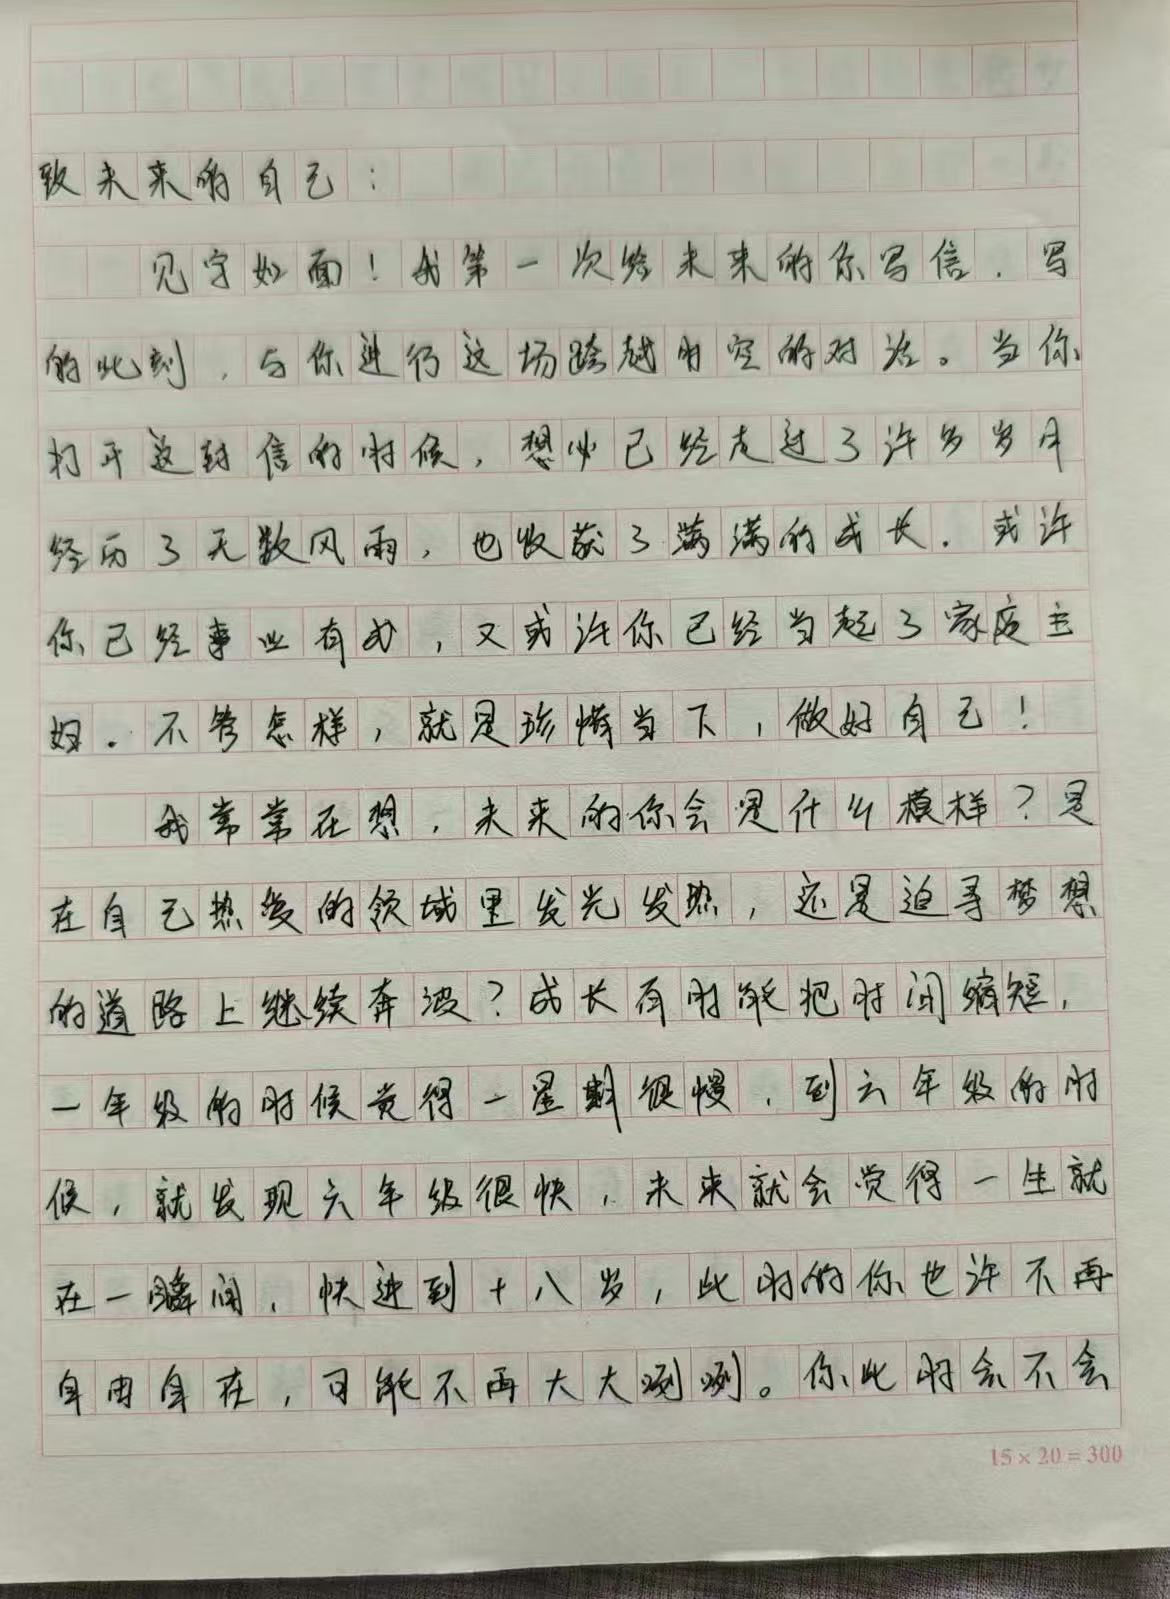 致未来的自己：
见字如面！我第一次给未来的你写信，写
的此刻，与你进行这场跨越时空的对话。当你
打开这封信的时候，想必已经走过了许多岁月
经历了无数风雨，也收获了满满的成长．或许
你已经事业有成，又或许你已经当起了家庭主
妇．不管怎样，就是珍惜当下，做好自己！
我常常在想，未来的你会是什么模样？是
在自己热爱的领域里发光发热，还是追寻梦想
的道路上继续奔波？成长有时能把时间缩短，
一年级的时候觉得一星期很慢，到六年级的时
候，就发现六年级很快，未来就会觉得一生就
在一瞬间，快进到十八岁，此时的你也许不再
自由自在，可能不再大大咧咧。你此时会不会
15×20=300